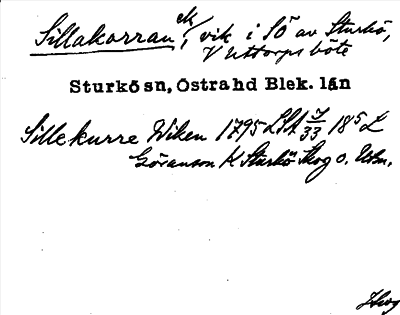 Sillakorran ek, vik i SÖ av Sturkö,
V Uttorps böte
Sturkö sn, Östra hd Blek. län
Sillekurre Wiken 1795 LSA J/33 18⁵ L
Göranson K Sturkö Skog o. Utm.